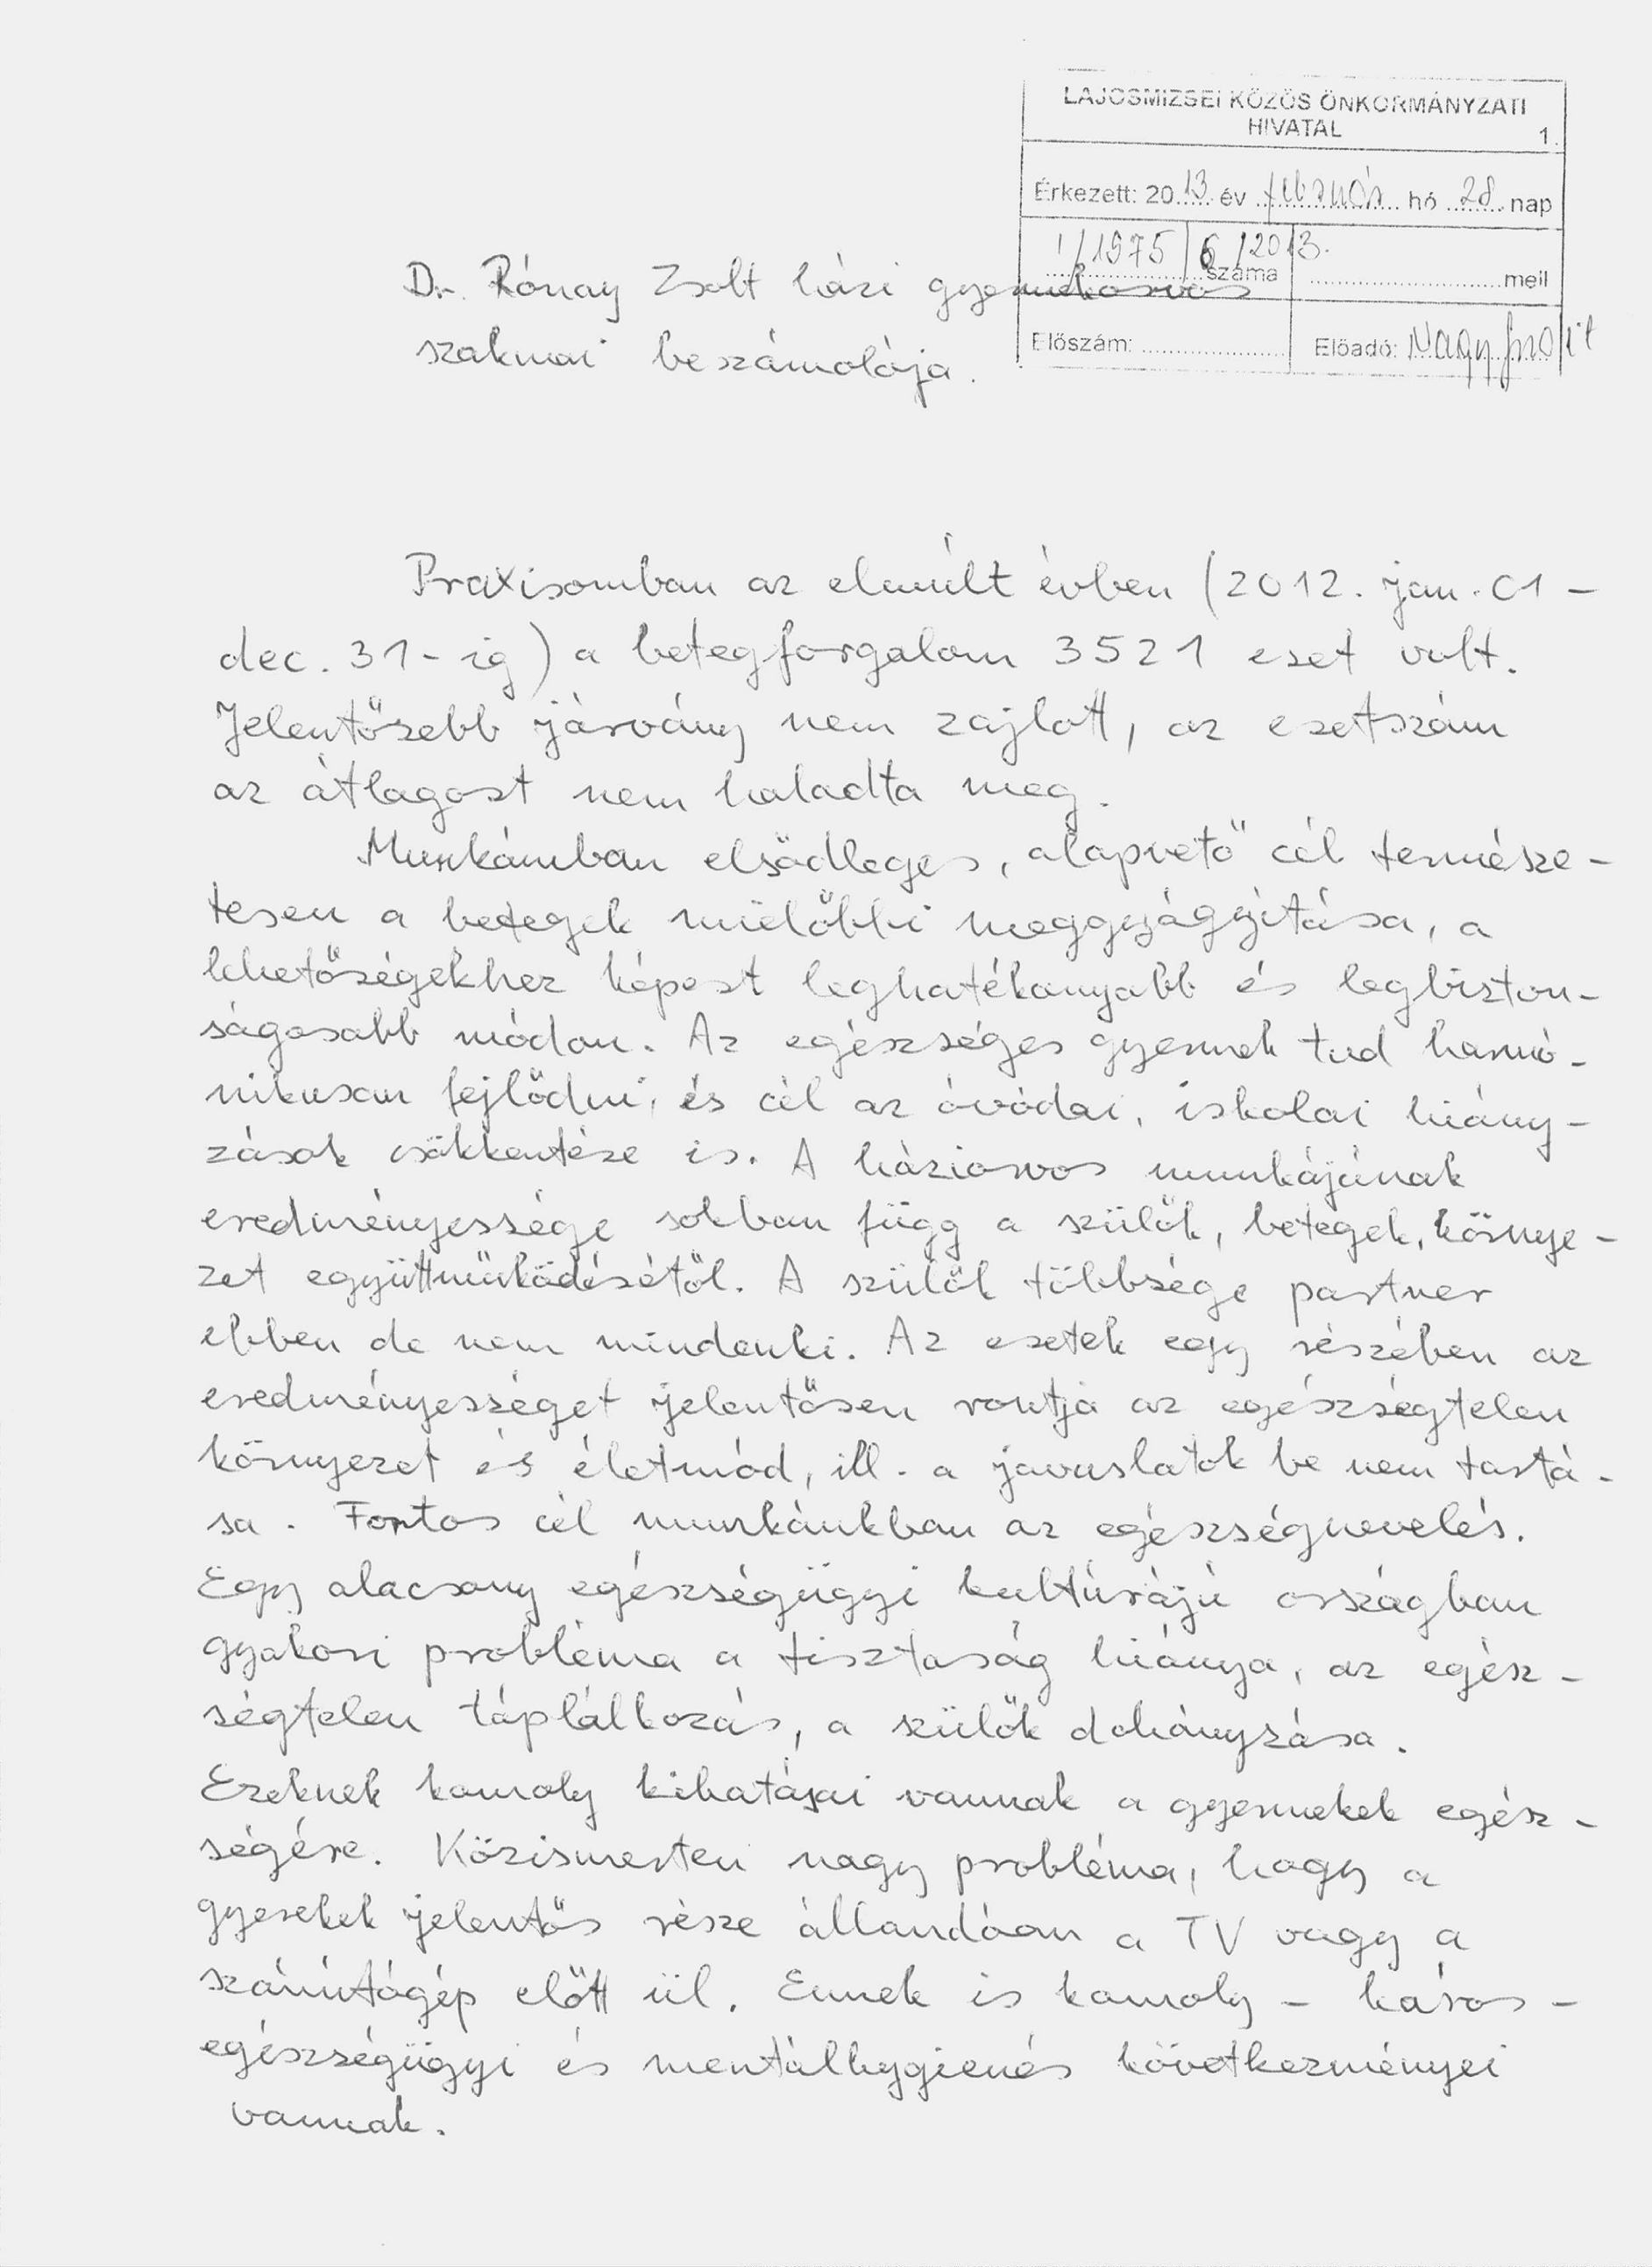 LAJOSMIZSEI KÖZÖS ÖNKORMÁNYZATI
HIVATAL
1.
Érkezett: 2013 év február hó 28 nap
1/1975/6/2013.
száma mell
Előszám: Előadó: Nagy
Dr. Rónay Zsolt házi gyermekorvos
szakmai beszámolója.
Praxisomban az elmúlt évben (2012. jan. 01 -
dec. 31-ig) a betegforgalom 3521 eset volt.
Jelentősebb járvány nem zajlott, az esetszám
az átlagost nem haladta meg.
Munkámban elsődleges, alapvető cél természe-
tesen a betegek mielőbbi meggyágyítása, a
lehetőségekhez képest leghatékonyabb és legbizton-
ságosabb módon. Az egészséges gyermek tud harmó-
nikusan fejlődni, és cél az óvódai, iskolai hiány-
zások csökkentése is. A háziorvos munkájának
eredményessége sokban függ a szülők, betegek, környe-
zet együttműködésétől. A szülők többsége partner
ebben de nem mindenki. Az esetek egy részében az
eredményességet jelentősen rontja az egészségtelen
környezet és életmód, ill. a javaslatok be nem tartá-
sa. Fontos cél munkánkban az egészségnevelés.
Egy alacsony egészségügyi kultúrájú országban
gyakori probléma a tisztaság hiánya, az egész-
ségtelen táplálkozás, a szülők dohányzása.
Ezeknek komoly kihatásai vannak a gyermekek egész-
ségére. Közismerten nagy probléma, hogy a
gyerekek jelentős része állandóan a TV vagy a
számítógép előtt ül. Ennek is komoly - káros -
egészségügyi és mentálhygienés következményei
vannak.